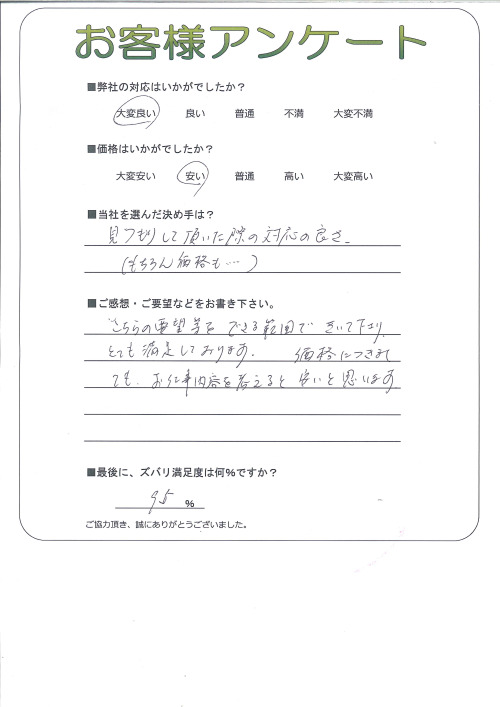 お客様アンケート
■弊社の対応はいかがでしたか?
大変良い 良い 普通 不満 大変不満
■価格はいかがでしたか?
大変安い 安い 普通 高い 大変高い
■当社を選んだ決め手は?
見つもりして頂いた際の対応の良さ。
(もちろん価格も…)
■ご感想・ご要望などをお書き下さい。
こちらの要望等を できる範囲で きいて下り、
とても満足しております。 価格につきまし
ても、お仕事内容を考えると 安いと思います
■最後に、ズバリ満足度は何%ですか?
95 %
ご協力頂き、誠にありがとうございました。